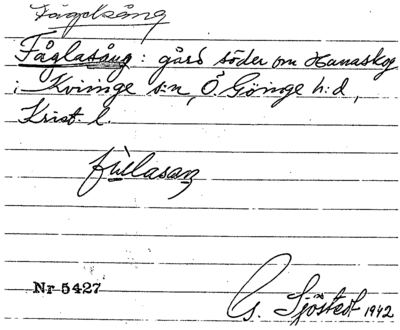 Fågelsång
Fåglasång: gård söder om Hanaskog
i Kvinge s:n, Ö. Göinge h:d,
Krist. l.
fùlasaŋ
Nr 5427
G. Sjöstedt 1942